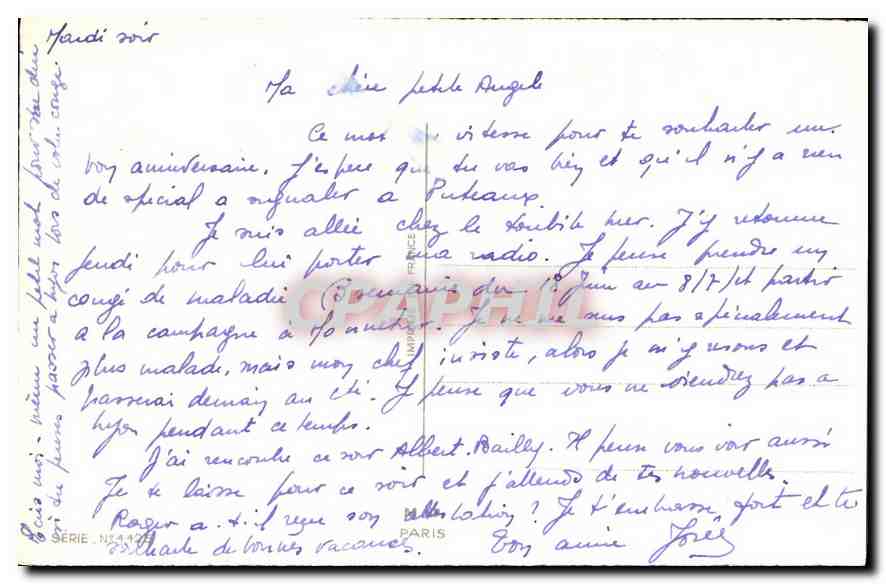 Mardi soir
Ma chère petite Angèle
Ce mot en vitesse pour te souhaiter un
bon anniversaire. J'espère que tu vas bien et qu'il n'y a rien
de spécial a signaler a Puteaux.
Je suis allée chez le toubib hier. J'y retourne
jeudi pour lui porter ma radio. Je pense prendre un
congé de maladie (3 semaines du 18 Juin au 8/7) et partir
a la campagne à Monnetier. Je ne me suis pas spécialement
plus malade, mais mon chef insiste, alors je m'y resous et
passerai demain au
Je pense que vous ne viendrez pas a
pendant ce temps.
J'ai rencontré ce soir Albert Bailly. Il pense vous voir aussi
Je te laisse pour ce soir et j'attends de tes nouvelles.
Roger a-t-il reçu son
? Je t'embrasse fort et te
souhaite de bonnes vacances.
Ton amie Josée
Ecris moi - même un petit mot pour me dire
si tu penses passer a
lors de votre congé.
CPAPHIL
IMPRIMÉ EN FRANCE
PARIS
SÉRIE N° 4425